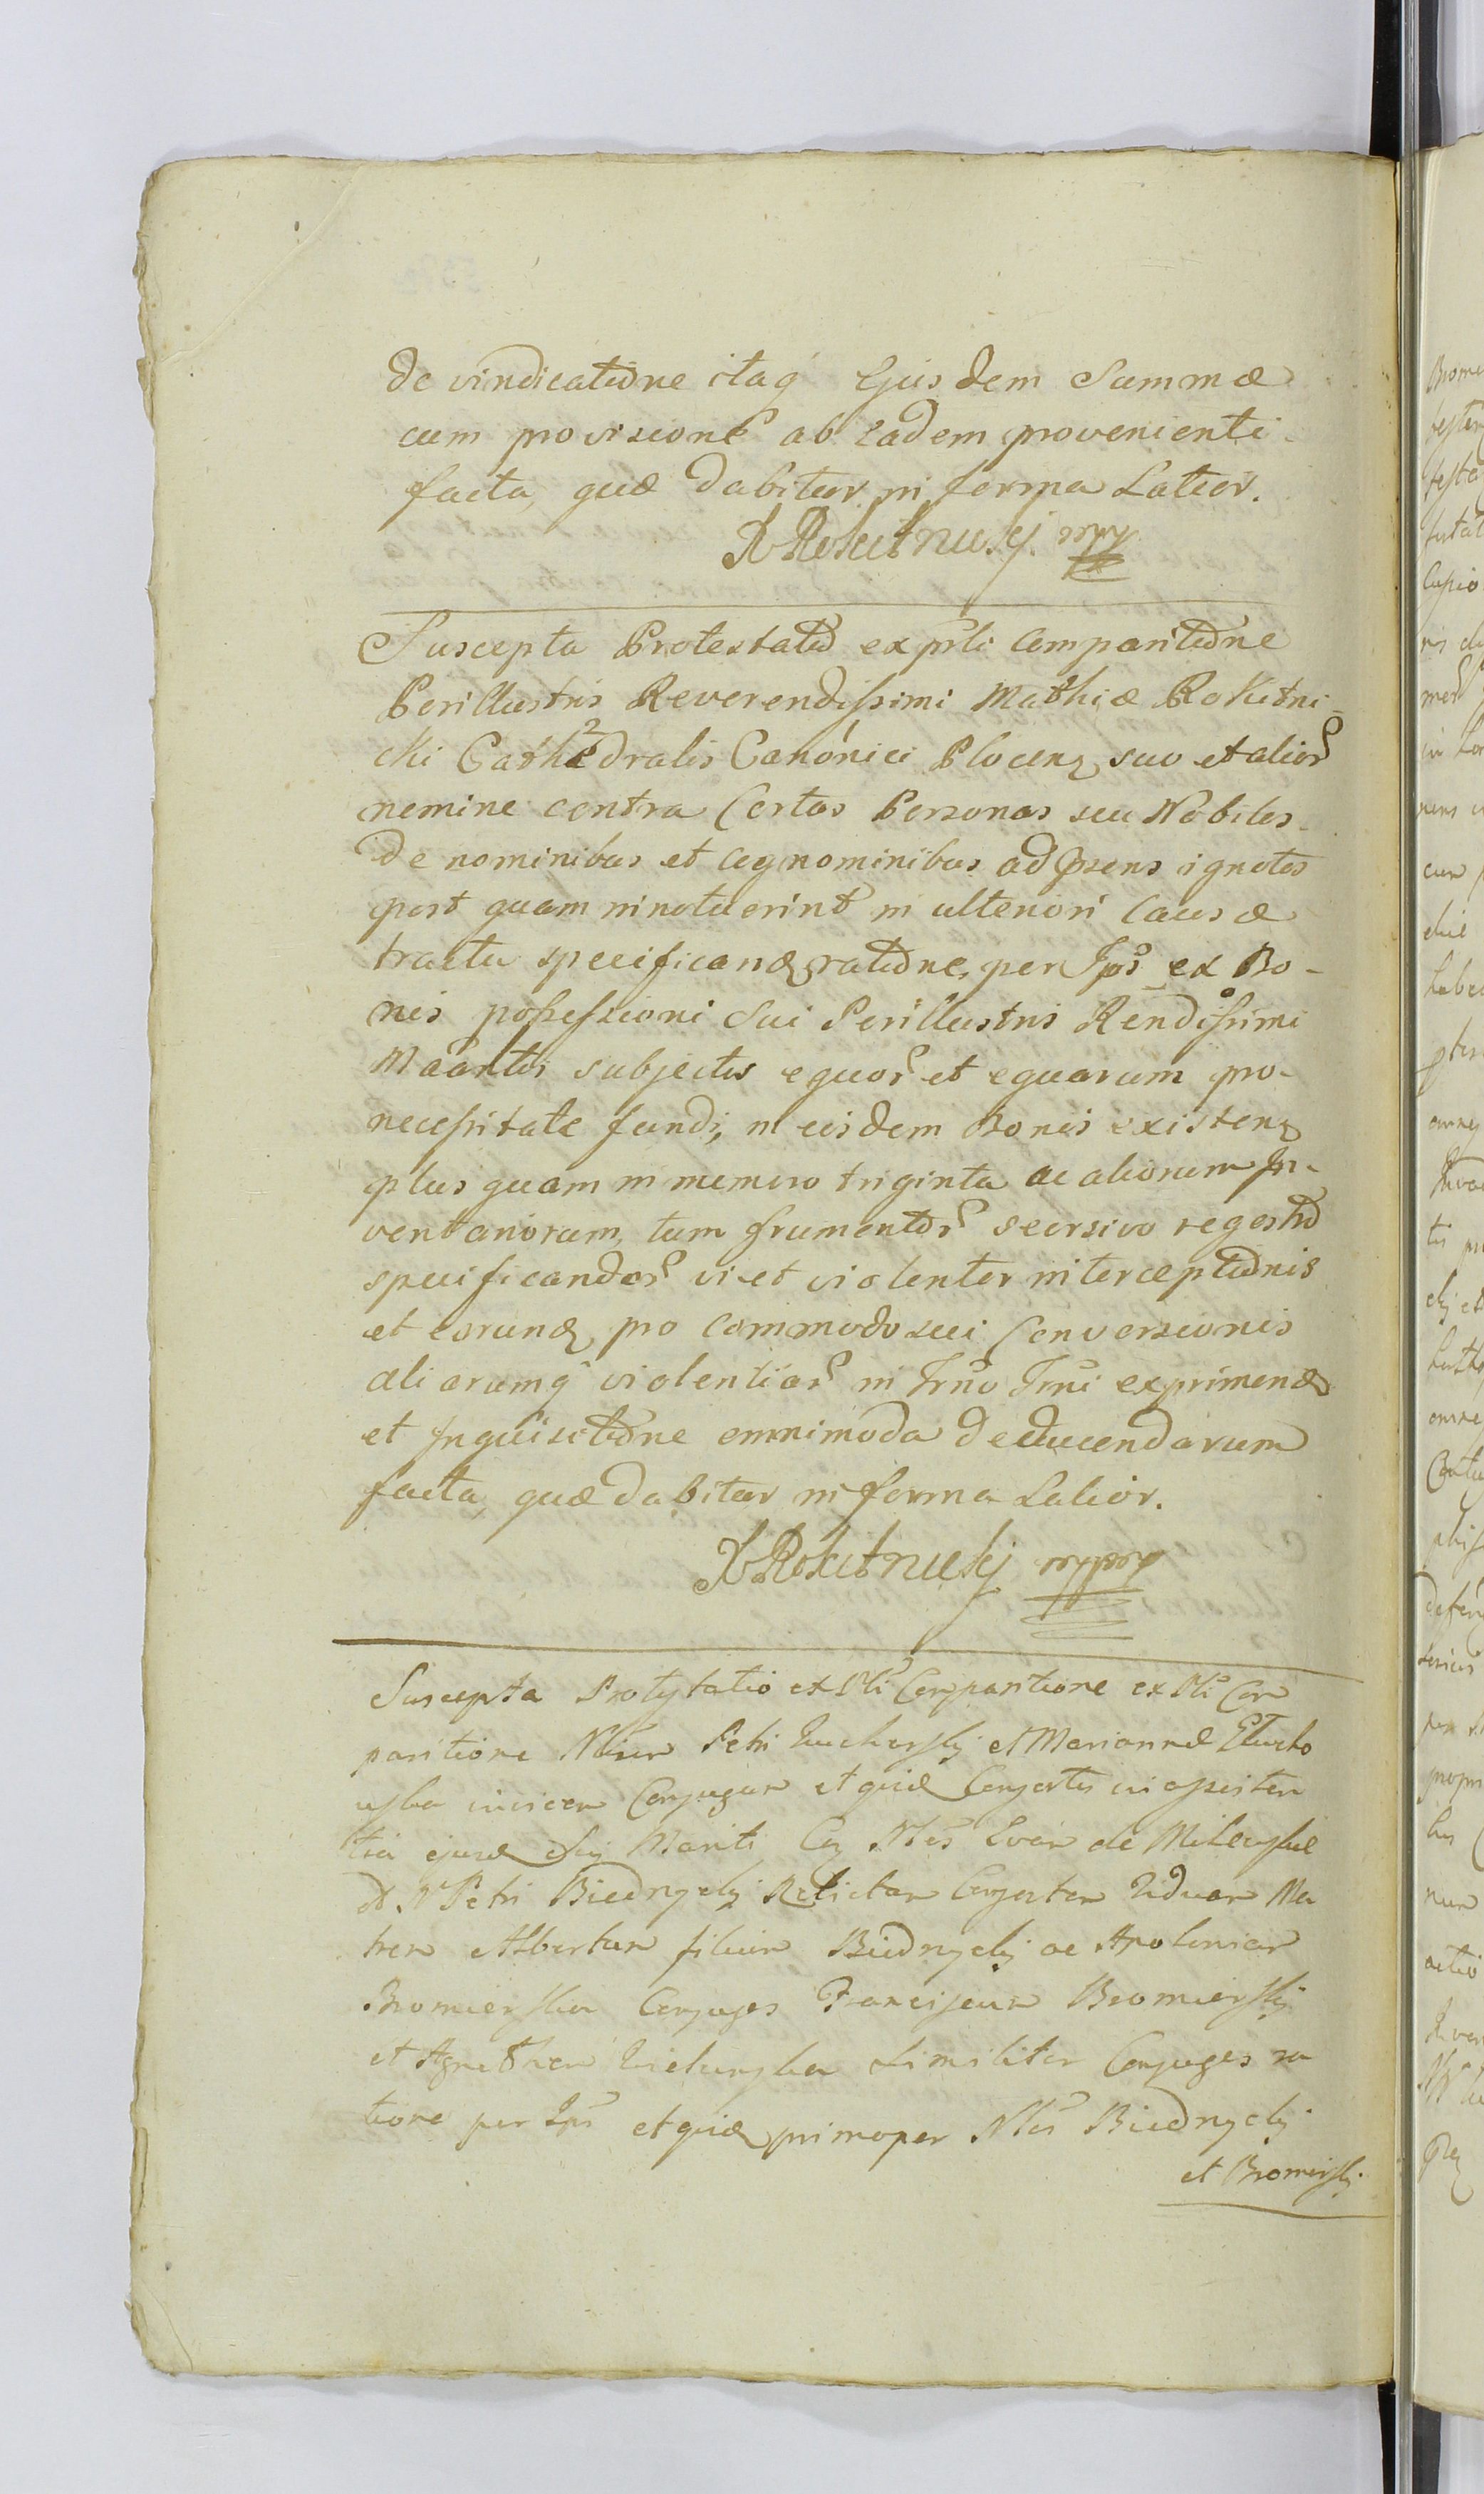 de vindicatione itaq̃ Ejusdem Summæ
cum provisione ab eadem provenienti
facta, quæ dabitur in forma Latior.
X Rokitnickj mpp
Suscepta Protestatio ex prsti Comparitione
Perillustris Reverendissimi Mathiæ Rokitni-
cki Cathedralis Canonici Plocens suo et alior
nemine contra Certas Personas seu Nobiles
de nominibus et cognominibus ad prsens ignotos
post quam innotuerint in ulteriori Causæ
tractu specificand ratione, per Ipos ex Bo-
nis possessioni Sui Perillustris Rendissimi
Maantis subjectis equor et equarum pro
necessitate fundi, in eisdem Bonis existend
plus quam in numero triginta ac aliorum In-
ventariorum, tum frumentor seorsivo regestro
specificandor vi et violenter interceptionis
et eorund pro commodo sui Conversionis
aliarumq̃ violentiar in Trno Trmi exprimend
et Inquisitione omnimoda deducendarum
facta, quæ dabitur in forma Latior.
X Rokitnickj mppr
Suscepta Protestatio ex Prsti Comparitione ex Prsti Com
paritione Petri et Mariannæ
invicem Conjugum et quid Consortis in assisten
tia ejusd sui Mariti Cog Nles Evam de
d. N Petri Biednyckj Relictam Consortem Viduam Ma
trem Albertum filium Biednyckj ac Apoloniam
Bromierska Conjuges Franciscum Bromierskj
et Agnethem similiter Conjuges ra
tione per Ips et quid primo per Nles Biednyckj
et Bromierskj